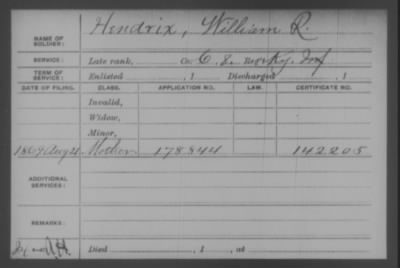 NAME OF SOLDIER: Hendrix, William R.
SERVICE: Late rank, Co. C. 8. Reg't Ky. Inf
TERM OF SERVICE: Enlisted , 1 Discharged , 1
DATE OF FILING. CLASS. APPLICATION NO. LAW. CERTIFICATE NO.
Invalid,
Widow,
Minor,
1869 Aug 21 Mother 178844 142205
ADDITIONAL SERVICES:
REMARKS:
Died , 1 , at